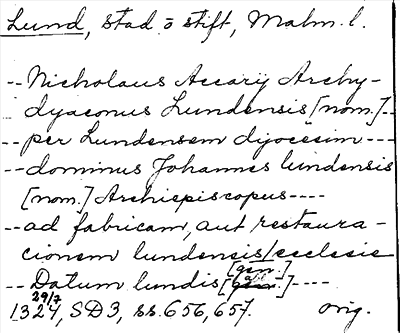 Lund, stad o stift, Malm. l.
-- Nicholaus Accarij Archy-
dyaconus Lundensis [nom.] --
-- per Lundensem dyocesim ---
-- dominus Johannes lundensis
[nom.] Archiepiscopus ----
-- ad fabricam, aut restaura-
cionem lundensis [gen.] ecclesie
-- Datum lundis [abl.] ----
29/7
1324, SD3, ss. 656, 657. orig.